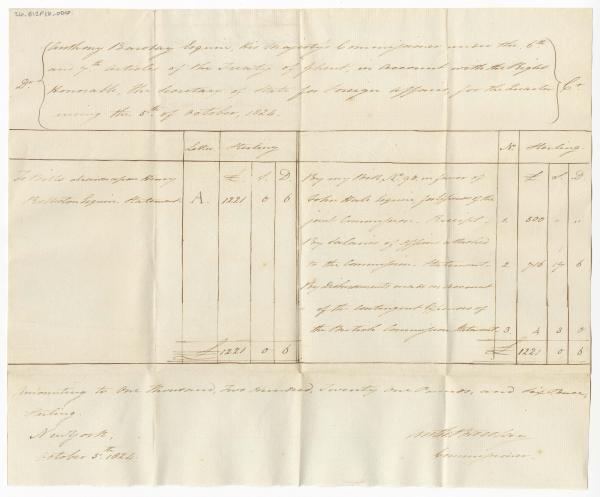 Dr. Anthony Barclay Esquire, His Majesty's Commissioner under the 6th
and 7th articles of the Treaty of Ghent, in account with the Right
Honorable, the Secretary of State for Foreign Affairs, for the Quarter
ending the 5th of October, 1824. Cr.
Letter Sterling
£ S. D
To Bills drawn upon Henry
Esquire. Statement A. 1221 0 6
£ 1221 0 6
No. Sterling
£ S. D
By my Bill, No. in favor of
John Hale Esquire for Expenses of the
joint Commission. Receipt 1. 500 " "
By Salaries of Officers attached
to the Commission. Statement 2. 716 17 6
By disbursements made on account
of the contingent Expenses of
the British Commission Statement 3. 4 3 0
£ 1221 0 6
Amounting to One thousand, two hundred, twenty one Pounds, and six Pence,
Sterling.
New York,
October 5th 1824.
Commissioner.